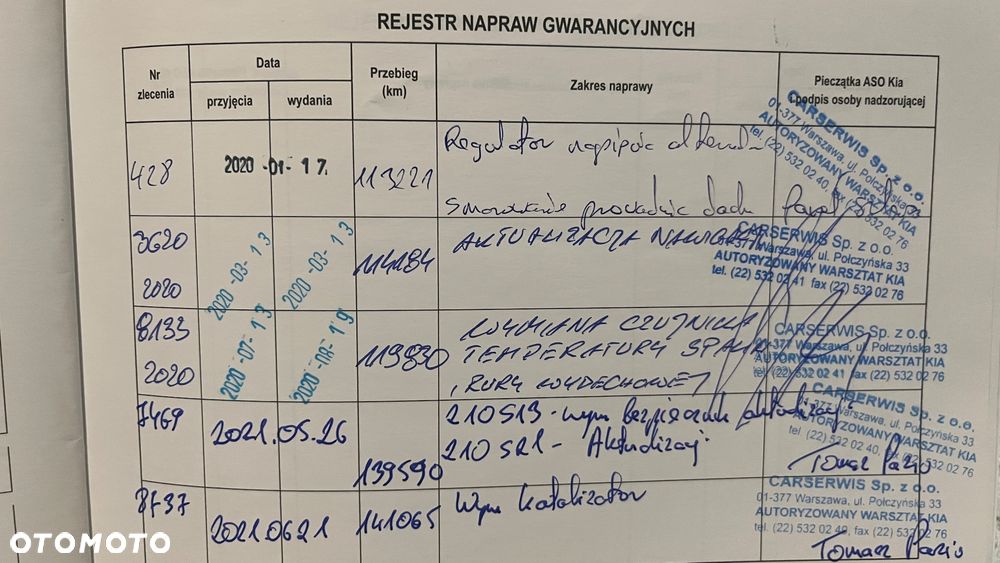 REJESTR NAPRAW GWARANCYJNYCH
Nr zlecenia
Data
przyjęcia
wydania
Przebieg (km)
Zakres naprawy
Pieczątka ASO Kia i podpis osoby nadzorującej
428
2020 -01- 17.
113221
Regulator napięcia
dachu
CARSERWIS Sp. z o.o.
01-377 Warszawa, ul. Połczyńska 33
AUTORYZOWANY WARSZTAT KIA
tel. (22) 532 02 40, fax (22) 532 02 76
3620
2020
2020 -03- 13
2020 -03- 13
114184
AKTUALIZACJA
CARSERWIS Sp. z o.o.
01-377 Warszawa, ul. Połczyńska 33
AUTORYZOWANY WARSZTAT KIA
tel. (22) 532 02 41 fax (22) 532 02 76
8133
2020
2020 -07- 13
2020 -08- 19
119830
WYMIANA CZUJNIKA
TEMPERATURY SPALIN
"RURY WYDECHOWEJ"
CARSERWIS Sp. z o.o.
01-377 Warszawa, ul. Połczyńska 33
AUTORYZOWANY WARSZTAT KIA
tel. (22) 532 02 41 fax (22) 532 02 76
7469
2021.05.26
139590
210S13 - wym bezpiecznik aktualizacji
210S21 - Aktualizacj
CARSERWIS Sp. z o.o.
01-377 Warszawa, ul. Połczyńska 33
AUTORYZOWANY WARSZTAT KIA
tel. (22) 532 02 40, fax (22) 532 02 76
Tomasz
8737
2021.06 21
141065
Wym katalizator
CARSERWIS Sp. z o.o.
01-377 Warszawa, ul. Połczyńska 33
AUTORYZOWANY WARSZTAT KIA
tel. (22) 532 02 40, fax (22) 532 02 76
Tomasz
OTOMOTO